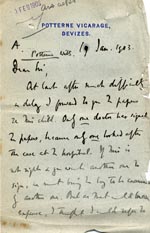 1 FEB 1903
POTTERNE VICARAGE,
DEVIZES.
A.
Potterne Wilts. 19 Jan. 1903.
Dear Sir,
At last after much difficulty
& delay I forward to you the papers
in this child. Only one doctor has signed
the papers, because only one looked after
the case at the hospital. If this is
not right & you want another one to
sign, we must bring the boy to be examined
of another one. But as that will be more
expense, I thought I should refer to